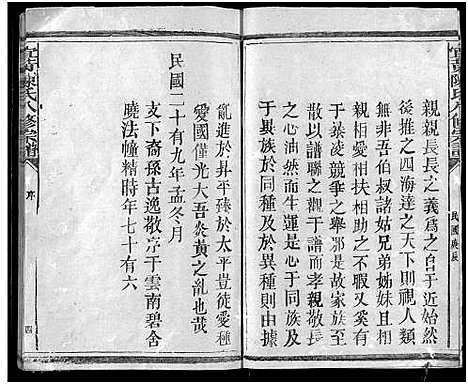 宜黄陳氏八修宗譜
民國庚辰
親親長長之義爲之自于近始然
後推之四海達之天下則視人類
無非吾伯叔諸姑兄弟姊妹且相
親相愛相扶相助之不暇又何至
于暴凌競爭之舉鄂是故家族之
散以譜聯之觀于譜而孝親敬長
之心油然而生運是心于同族及
異族由於同種及于異種則由據
亂進於昇平臻於太平豈徒愛種
愛國僅光大吾炎黃之亂也哉
民國二十有九年孟冬月
支下裔孫古逸散序于雲南碧含
曉法幢精時年七十有六
宜黄陳氏八修宗譜
序
四